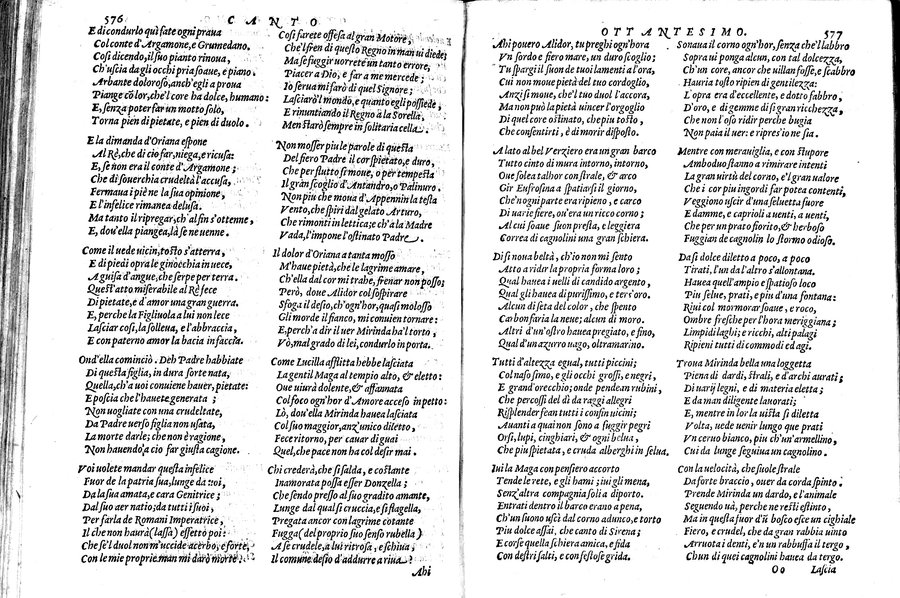 576 CANTO
E di condurlo quì fate ogni praua
Col conte d'Argamone, e Grumedano.
Cosi dicendo, il suo pianto rinoua,
Ch'uscia da gli occhi pria soaue, e piano.
Arbante doloroso, anch'egli a proua
Piange color, che'l core ha dolce, humano:
E, senza poter far un motto solo,
Torna pien di pietate, e pien di duolo.
E la dimanda d'Oriana espone
Al Rè, che di cio far niega, e ricusa:
E, se non era il conte d'Argamone;
Che di souerchia crudeltà l'accusa,
Fermaua i piè ne la sua opinione,
E l'infelice rimanea delusa.
Ma tanto il ripregar, ch'al fin s'ottenne,
E, dou'ella piangea, là se ne uenne.
Come il uede uicin, tosto s'atterra,
E di piedi opra le ginocchia in uece,
A guisa d'angue, che serpe per terra.
Quest'atto miserabile al Rè fece
Di pietate, e d'amor una gran guerra.
E, perche la Figliuola a lui non lece
Lasciar cosi, la solleua, e l'abbraccia,
E con paterno amor la bacia in faccia.
Ond'ella cominciò. Deh Padre habbiate
Di questa figlia, in dura sorte nata,
Quella, ch'a uoi conuiene hauer, pietate:
E poscia che l'hauete generata;
Non uogliate con una crudeltate,
Da Padre uerso figlia non usata,
La morte darle; che non è ragione,
Non hauendo'a cio far giusta cagione.
Voi uolete mandar questa infelice
Fuor de la patria sua, lunge da uoi,
Da la sua amata, e cara Genitrice;
Dal suo aer natio; da tutti i suoi,
Per farla de Romani Imperatrice,
Il che non haurà (lassa) effetto poi:
Che se'l duol non m'uccide acerbo, e forte,
Con le mie proprie man mi darò morte.
Cosi farete offesa al gran Motore,
Che'lfren di questo Regno in man ui diede;
Ma se fuggir uorrete un tanto errore,
Piacer a Dio, e far a me mercede;
Io serua mi farò di quel Signore;
Lasciarò'l mondo, e quanto egli possiede,
E rinuntiando il Regno à la Sorella,
Men starò sempre in solitaria cella.
Non mosser piu le parole di questa
Del fiero Padre il cor spietato, e duro,
Che per flutto si moue, o per tempesta
Il gran scoglio d'Antandro, o Palinuro.
Non piu che moua d'Appennin la testa
Vento, che spiri dal gelato Arturo,
Che rimonti in lettica; e ch'à la Madre
Vada, l'impone l'ostinato Padre.
Il dolor d'Oriana a tanta mosso
M'haue pietà, che le lagrime amare,
Ch'ella dal cor mi trahe, frenar non posso;
Però, doue Alidor col sospirare
Sfoga il desio, ch'ogn'hor, quasi molosso
Gli morde il fianco, mi conuien tornare:
E, perch'a dir il uer Mirinda ha'l torto,
Vò, mal grado di lei, condurlo in porta.
Come Lucilla afflitta hebbe lasciata
La gentil Maga al tempio alto, & eletto:
Oue uiurà dolente, & affannata
Col foco ogn'hor d'Amore acceso in petto:
Lò, dou'ella Mirinda hauea lasciata
Col suo maggior, anz'unico diletto,
Fece ritorno, per cauar di guai
Quel, che pace non ha col desir mai.
Chi crederà, che si salda, e costante
Inamorata possa esser Donzella;
Che sendo presso al suo gradito amante,
Lunge dal qual si cruccia, e si flagella,
Pregata ancor con lagrime cotante
Fugga (del proprio suo senso rubella)
A se crudele, a lui ritrosa, e schiua,
Il comune desio d'addurre a riua?
Ahi
OTTANTESIMO. 577
Ahi pouero Alidor, tu preghi ogn'hora
Vn sordo e fiero mare, un duro scoglio;
Tu spargi il suon de tuoi lamenti a l'ora,
Cui non moue pietà del tuo cordoglio,
Anzi si moue, che'l tuo duol l'accora,
Ma non può la pietà uincer l'orgoglio
Di quel core ostinato, che piu tosto,
Che consentirti, è di morir disposto.
A lato al bel Verziero era un gran barco
Tutto cinto di mura intorno, intorno,
Oue solea talhor con strale, & arco
Gir Eufrosina a spatiarsi il giorno,
Che'n ogni parte era ripieno, e carco
Di uarie fiere, ou'era un ricco corno;
Al cui soaue suon presta, e leggiera
Correa di cagnolini una gran schiera.
Di si noua beltà, ch'io non mi sento
Atto a ridir la propria forma loro;
Qual hauea i uelli di candido argento,
Qual gli hauea di purissimo, e ters'oro.
Alcun di seta del color, che spento
Carbon faria la neue; alcun di moro.
Altri d'un'ostro hauea pregiato, e fino,
Qual d'un azurro uago, oltramarino.
Tutti d'altezza egual, tutti piccini;
Col naso simo, e gli occhi grossi, e negri,
E grand'orecchio; onde pendean rubini,
Che percossi del dì da raggi allegri
Risplender fean tutti i confin uicini;
Auanti a quai non sono a fuggir pegri
Orsi, lupi, cinghiari, & ogni belua,
Che piu spietata, e cruda alberghi in selua.
Iui la Maga con pensiero accorto
Tende le rete, e gli hami; iui gli mena,
Senz'altra compagnia soli a diporto.
Entrati dentro il barco erano a pena,
Ch'un suono uscì dal corno adunco, e torto
Piu dolce assai, che canto di Sirena;
E corse quella schiera amica, e fida
Con destri salti, e con festose grida.
Sonaua il corno ogn'hor, senza che'l labbro
Sopra ui ponga alcun, con tal dolcezza,
Ch'un cor, ancor che uillan fosse, e scabbro
Hauria tosto ripien di gentilezza:
L'opra era d'eccellente, e dotto fabbro,
D'oro, e di gemme di si gran ricchezza,
Che non l'oso ridir perche bugia
Non paia il uer: e ripres'io ne sia.
Mentre con merauiglia, e con stupore
Ambo duo stanno a rimirare intenti
La gran virtù del corno, e'l gran ualore
Che i cor piu ingordi far potea contenti,
Veggiono uscir d'una seluetta fuore
E damme, e caprioli a uenti, a uenti,
Che per un prato fiorito, & herboso
Fuggian de cagnolin lo stormo odioso.
Da si dolce diletto a poco, a poco
Tirati, l'un da l'altro s'allontana.
Hauea quell'ampio e spatioso loco
Piu selue, prati, e piu d'una fontana:
Riui col mormorar soaue, e roco,
Ombre fresche per l'hora meriggiana;
Limpidi laghi; e ricchi, alti palagi
Ripieni tutti di commodi ed agi.
Troua Mirinda bella una loggetta
Piena di dardi, strali, e d'archi aurati;
Di uarij legni, e di materia eletta;
E da man diligente lauorati;
E, mentre in lor la uista si diletta
Volta, uede uenir lungo que prati
Vn ceruo bianco, piu ch'un'armellino,
Cui da lunge seguiua un cagnolino.
Con la velocità, che suole strale
Da forte braccio, ouer da corda spinto.
Prende Mirinda un dardo, e l'animale
Seguendo uà, perche ne resti estinto,
Ma in questa fuor d'ũ bosco esce un cighiale
Fiero, e crudel, che da gran rabbia uinto
Arruota i denti, e'n un rabbuffa il tergo,
Ch un di quei cagnolini hauea da tergo.
Oo Lascia